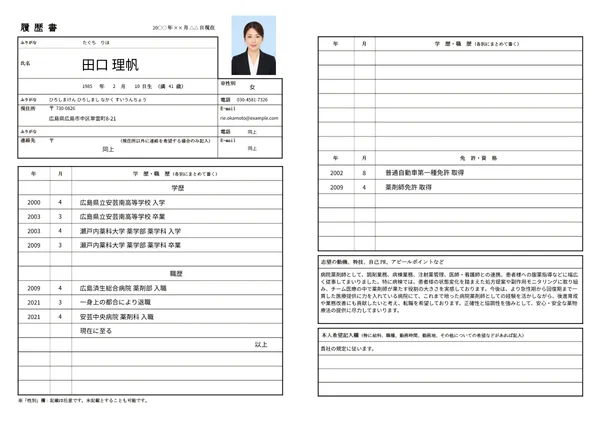 履 歴 書
20○○ 年 ×× 月 △△ 日現在
ふりがな
たぐち りほ
氏名
田口 理帆
1985 年 2 月 10 日生 (満 41 歳)
※性別
女
ふりがな
ひろしまけん ひろしまし なかく すいうんちょう
電話 050-4581-7326
現住所
〒 730-0826
E-mail
広島県広島市中区翠雲町8-21
rie.okamoto@example.com
ふりがな
電話
同上
連絡先
〒
(現住所以外に連絡を希望する場合のみ記入)
E-mail
同上
同上
年 月 学 歴・職 歴 (各別にまとめて書く)
学歴
2000 4 広島県立安芸南高等学校 入学
2003 3 広島県立安芸南高等学校 卒業
2003 4 瀬戸内薬科大学 薬学部 薬学科 入学
2009 3 瀬戸内薬科大学 薬学部 薬学科 卒業
職歴
2009 4 広島済生総合病院 薬剤部 入職
2021 3 一身上の都合により退職
2021 4 安芸中央病院 薬剤科 入職
現在に至る
以上
※「性別」欄：記載は任意です。未記載とすることも可能です。
年 月 学 歴・職 歴 (各別にまとめて書く)
年 月 免 許・資 格
2002 8 普通自動車第一種免許 取得
2009 4 薬剤師免許 取得
志望の動機、特技、自己PR、アピールポイントなど
病院薬剤師として、調剤業務、病棟業務、注射薬管理、医師・看護師との連携、患者様への服薬指導などに幅広
く従事してまいりました。特に病棟では、患者様の状態変化を踏まえた処方提案や副作用モニタリングに取り組
み、チーム医療の中で薬剤師が果たす役割の大きさを実感しております。今後は、より急性期から回復期まで一
貫した医療提供に力を入れている病院にて、これまで培った病院薬剤師としての経験を活かしながら、後進育成
や業務改善にも貢献したいと考え、転職を希望しております。正確性と協調性を強みとして、安心・安全な薬物
療法の提供に尽力してまいります。
本人希望記入欄 (特に給料、職種、勤務時間、勤務地、その他についての希望などがあれば記入)
貴社の規定に従います。